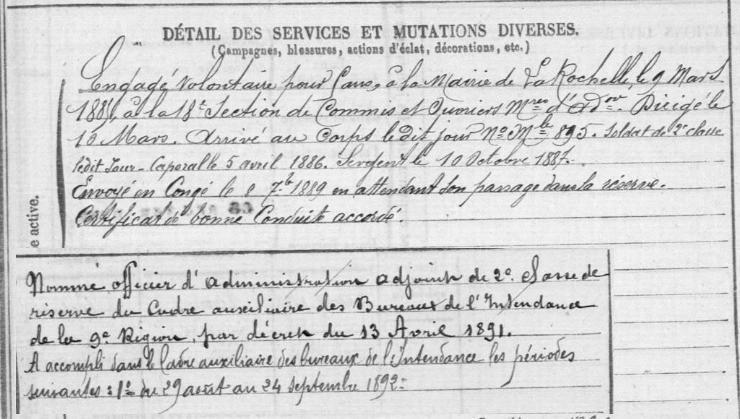 DÉTAIL DES SERVICES ET MUTATIONS DIVERSES.
(Campagnes, blessures, actions d'éclat, décorations, etc.)
Engagé Volontaire pour ans, à la Mairie de La Rochelle, le 9 Mars
188 à la 18e Section de Commis et Ouvriers Mres d'Adon. Dirigé le
10 Mars. Arrivé au Corps le dit jour No Mle 895. Soldat de 2e classe
le dit Jour. Caporal le 5 avril 1886. Sergent le 10 Octobre 1887.
Envoyé en Congé le 7bre 1889 en attendant son passage dans la réserve.
Certificat de bonne Conduite accordé.
e active.
Nommé officier d'administration adjoint de 2e Classe de
réserve du Cadre auxiliaire des Bureaux de l'Intendance
de la 9e Région, par décret du 13 Avril 1891.
A accompli dans le Cadre auxiliaire des bureaux de l'Intendance les périodes
suivantes : 1e du 29 août au 24 septembre 1892.